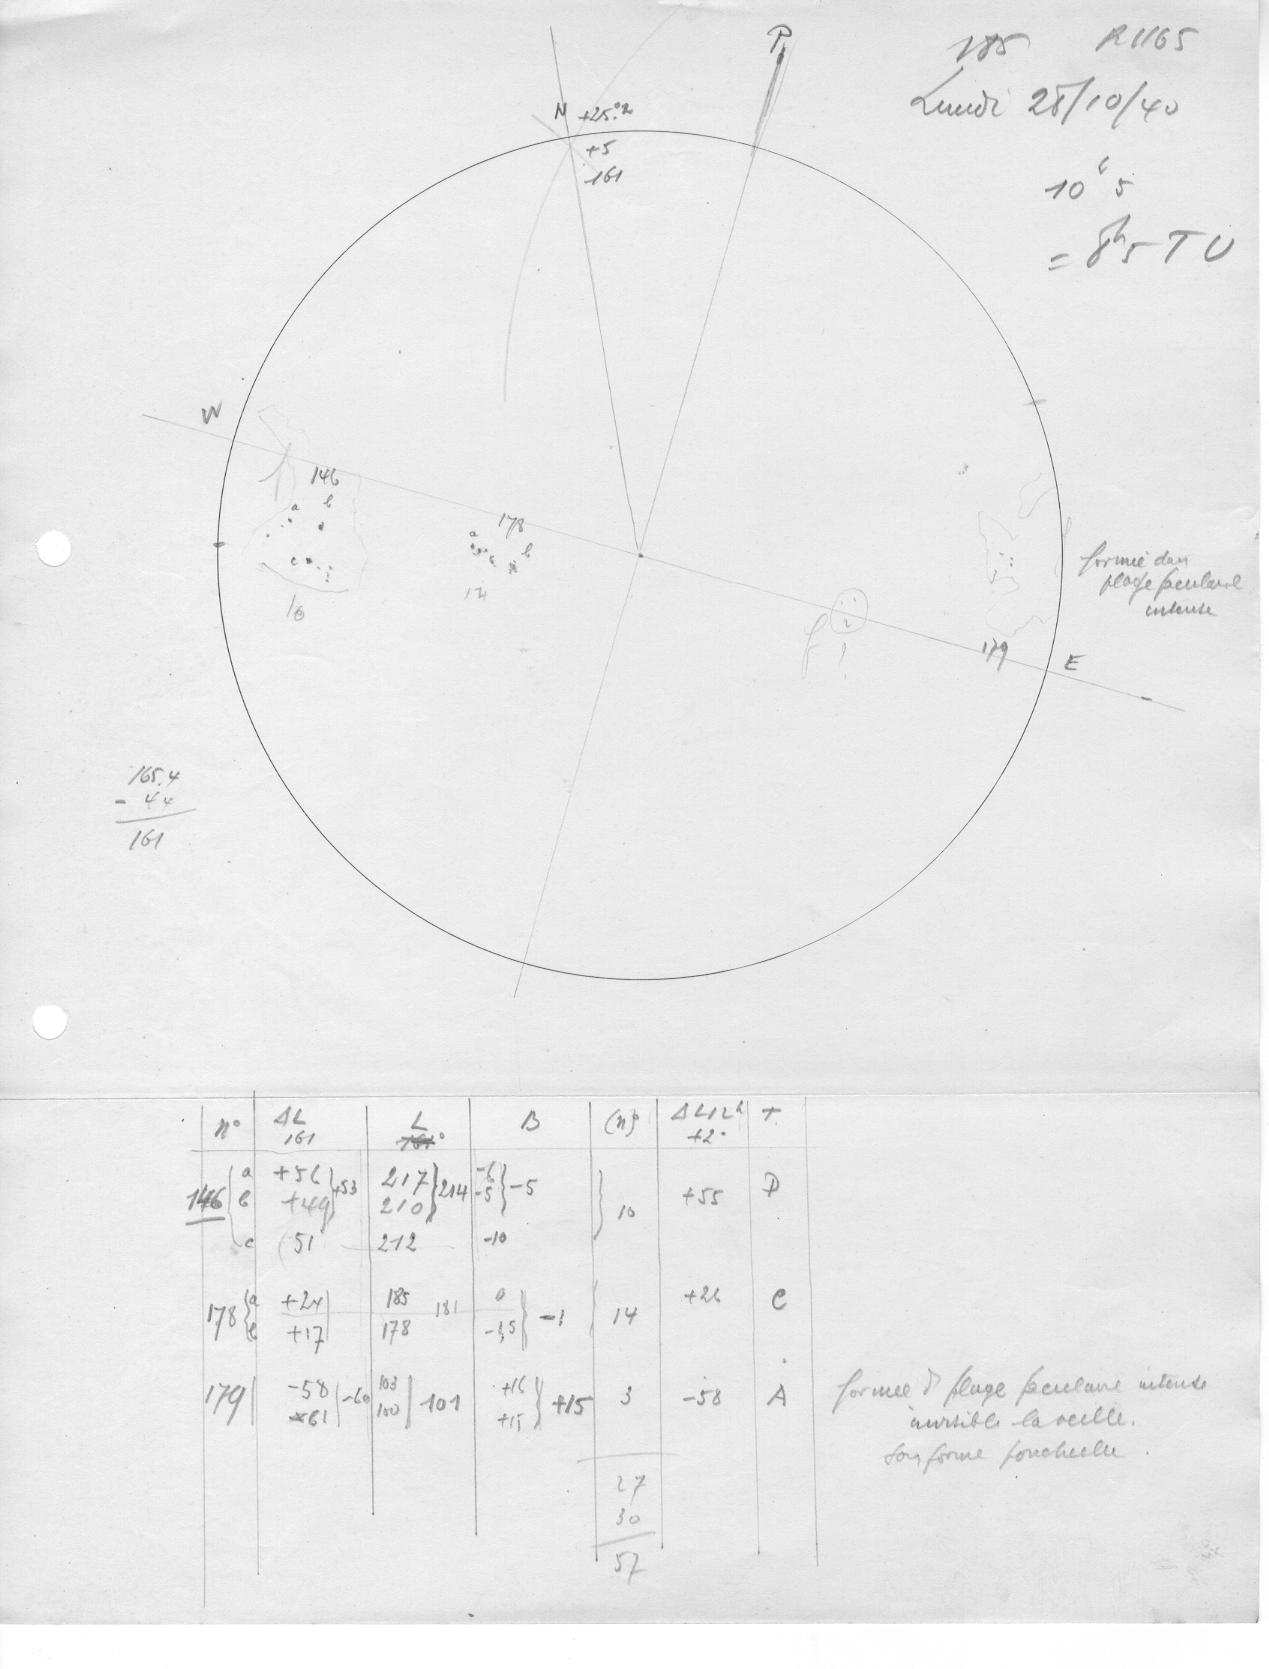 185 R1165
Lundi 28/10/40
10h5
= 8h5 TU
P
N +25°2
+5
161
W
146
a b
c
10
178
a b
14
formée dans
plage faculaire
intense
179
E
165.4
- 44
161
n° ΔL 161 L B (n) ΔL12h +2° T
146 a +56 +53 217 214 -6 -5 10 +55 D
b +49 210 -5
c 51 212 -10
178 a +24 185 181 0 -1 14 +26 C
b +17 178 -1,5
179 -58 -60 103 101 +16 +15 3 -58 A
-61 100 +15
formée ds plage faculaire intense
invisible la veille.
sous forme
27
30
57